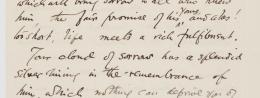 which will bring sorrow to all who knew
him, the fair promise of his years and alas!
too short, life meets a rich fulfilment.
Your cloud of sorrow has a splendid
silver lining in the remembrance of
him, which nothing can deprive you of